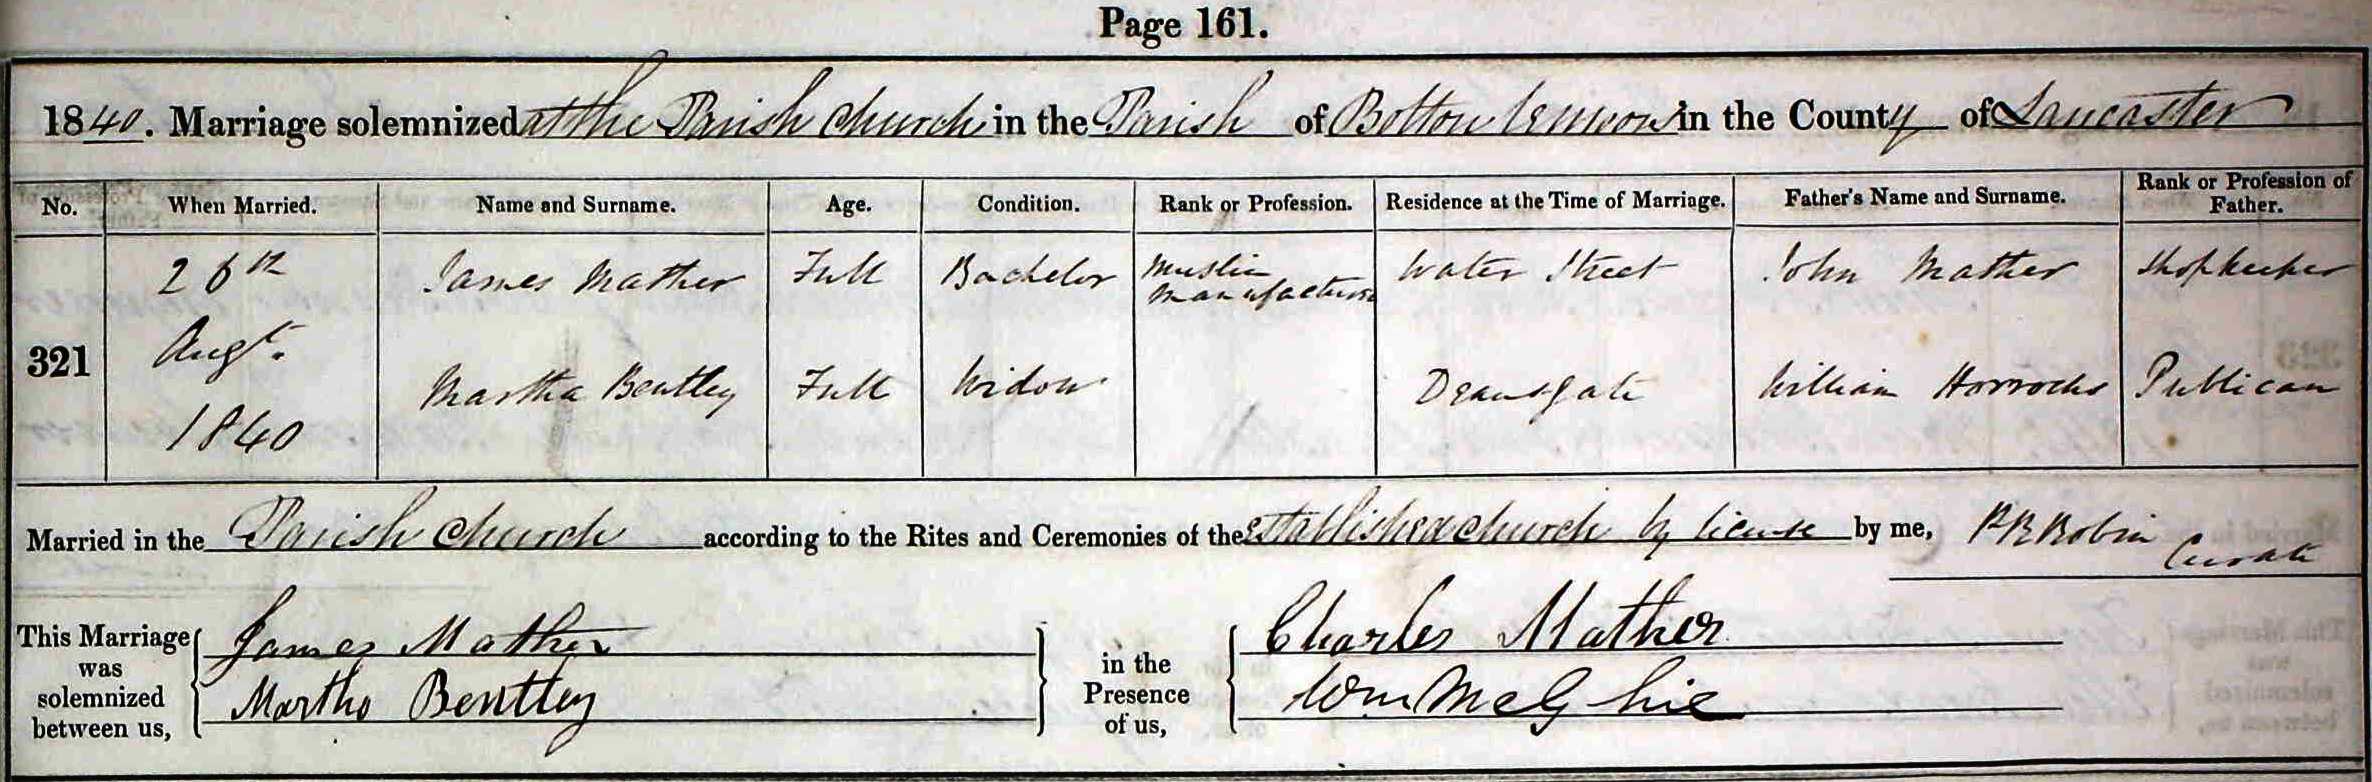 Page 161.
1840. Marriage solemnized at the Parish Church in the Parish of Bolton le moors in the County of Lancaster
No. When Married. Name and Surname. Age. Condition. Rank or Profession. Residence at the Time of Marriage. Father's Name and Surname. Rank or Profession of Father.
321 26th Augt. 1840 James Mather Full Bachelor Muslin Manufacturer Water Street John Mather Shopkeeper
Martha Bentley Full Widow Deansgate William Horrocks Publican
Married in the Parish Church according to the Rites and Ceremonies of the Established Church by license by me, P R Robin Curate
This Marriage was solemnized between us, James Mather Martha Bentley in the Presence of us, Charles Mather Wm McGhie